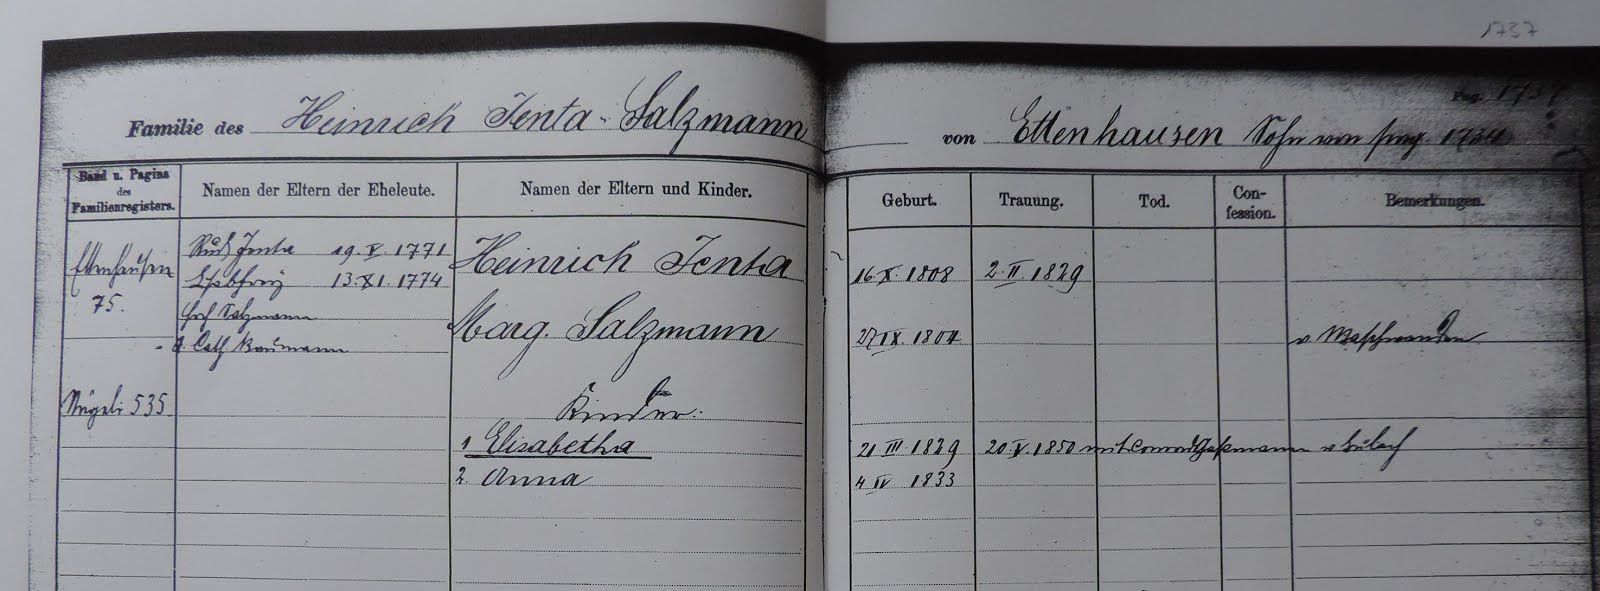 1737
Pag. 1737
Familie des Heinrich Jenta-Salzmann von Ettenhausen Sohn von pag. 1734
Band u. Pagina des Familienregisters.
Namen der Eltern der Eheleute.
Namen der Eltern und Kinder.
Geburt.
Trauung.
Tod.
Con-
fession.
Bemerkungen.
Ettenhausen
75.
Rud. Jenta 19. V. 1771
13. XI. 1774
Salzmann
Cath. Baumann
Heinrich Jenta 16. X. 1808 2. II. 1829
Marg. Salzmann 27 IX. 1804 v. Maschwanden
Nägeli 535
Kinder.
1 Elisabetha 21 III 1829 20. V. 1850 mit Conrad Gassmann v Bülach
2. Anna 4 IV 1833